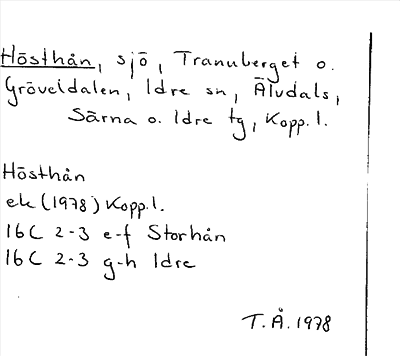 Hösthån, sjö, Tranuberget o.
Gröveldalen, Idre sn, Älvdals,
Särna o. Idre tg, Kopp.l.
Hösthån
ek (1978) Kopp.l.
16C 2-3 e-f Storhån
16C 2-3 g-h Idre
T.Å. 1978